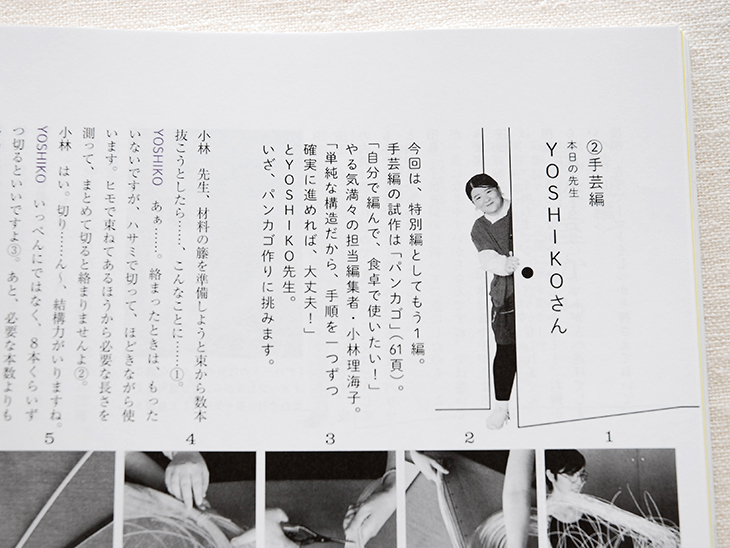 ②手芸編
本日の先生
YOSHIKOさん
今回は、特別編としてもう1編。
手芸編の試作は「パンカゴ」(61頁)。
「自分で編んで、食卓で使いたい！」
やる気満々の担当編集者・小林理海子。
「単純な構造だから、手順を一つずつ
確実に進めれば、大丈夫！」
とYOSHIKO先生。
いざ、パンカゴ作りに挑みます。
小林　先生、材料の籐を準備しようと束から数本
抜こうとしたら……、こんなことに……①。
YOSHIKO　あぁ……。絡まったときは、もった
いないですが、ハサミで切って、ほどきながら使
います。ヒモで束ねてあるほうから必要な長さを
測って、まとめて切ると絡まりませんよ②。
小林　はい。切り……ん〜、結構力がいりますね。
YOSHIKO　いっぺんにではなく、8本くらいず
つ切るといいですよ③。あと、必要な本数よりも
1
2
3
4
5